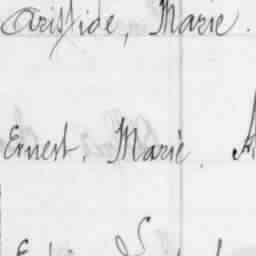 Aristide, Marie.
Ernest, Marie.